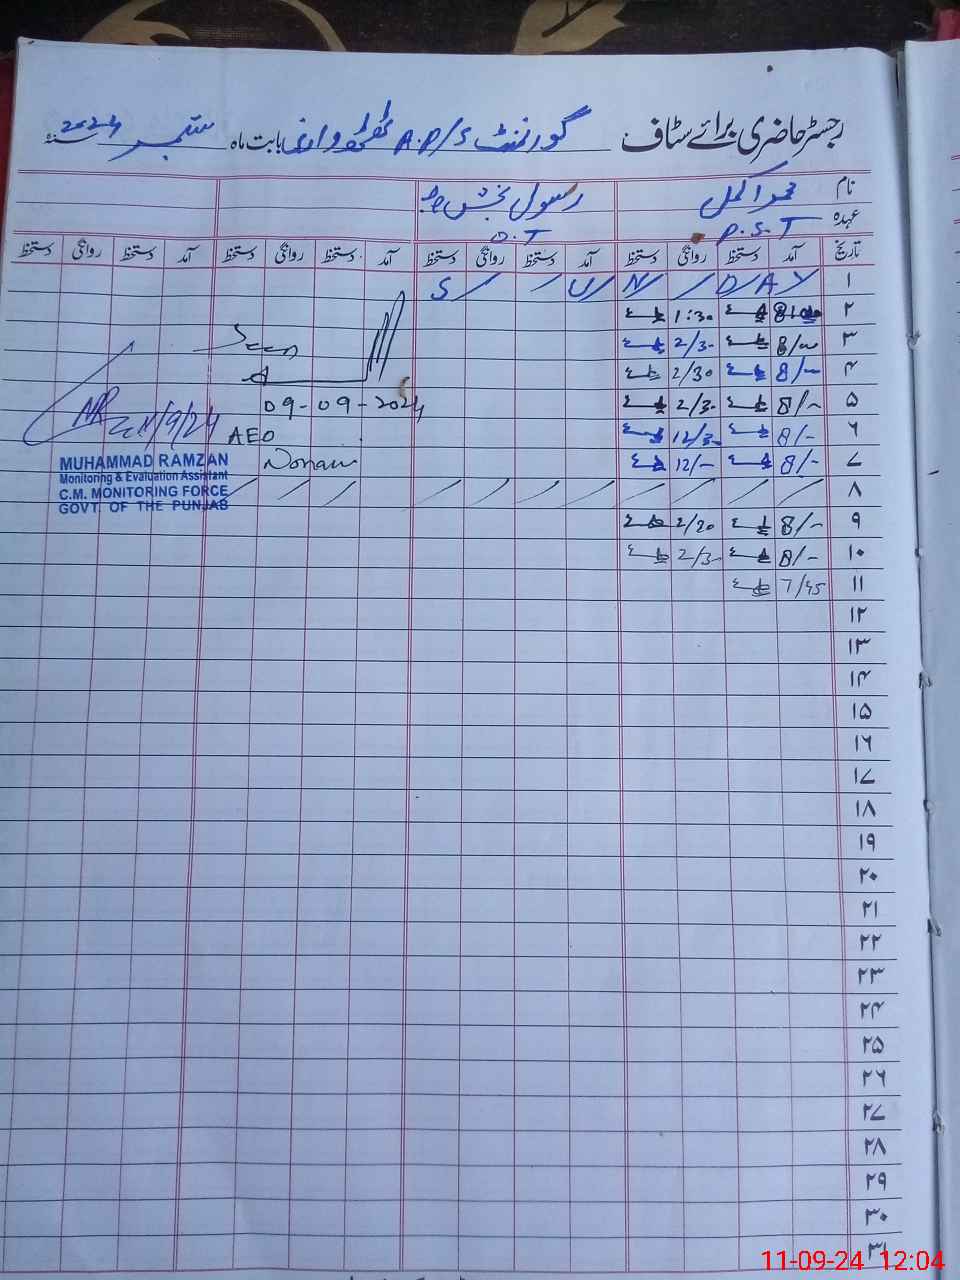 رجسٹر حاضری برائے سٹاف گورنمنٹ A.P/S بابت ماہ ستمبر سنہ 2024
نام محمد اکمل رسول بخش
عہدہ P.S.T O.T
تاریخ آمد دستخط روانگی دستخط آمد دستخط روانگی دستخط آمد دستخط روانگی دستخط آمد دستخط روانگی دستخط
۱ S / / U / N / / D / A Y
۲ 1:30
۳ 8/- 2/3-
۴ 8/- 2/30
۵ 8/- 2/3-
09-09-2024
۶ 8/- 12/3-
AEO
11/9/24
۷ 8/- 12/-
MUHAMMAD RAMZAN
Monitoring & Evaluation Assistant
C.M. MONITORING FORCE
GOVT. OF THE PUNJAB
۸
۹ 8/- 2/20
۱۰ 8/- 2/3-
۱۱ 7/45
۱۲
۱۳
۱۴
۱۵
۱۶
۱۷
۱۸
۱۹
۲۰
۲۱
۲۲
۲۳
۲۴
۲۵
۲۶
۲۷
۲۸
۲۹
۳۰
۳۱
11-09-24 12:04